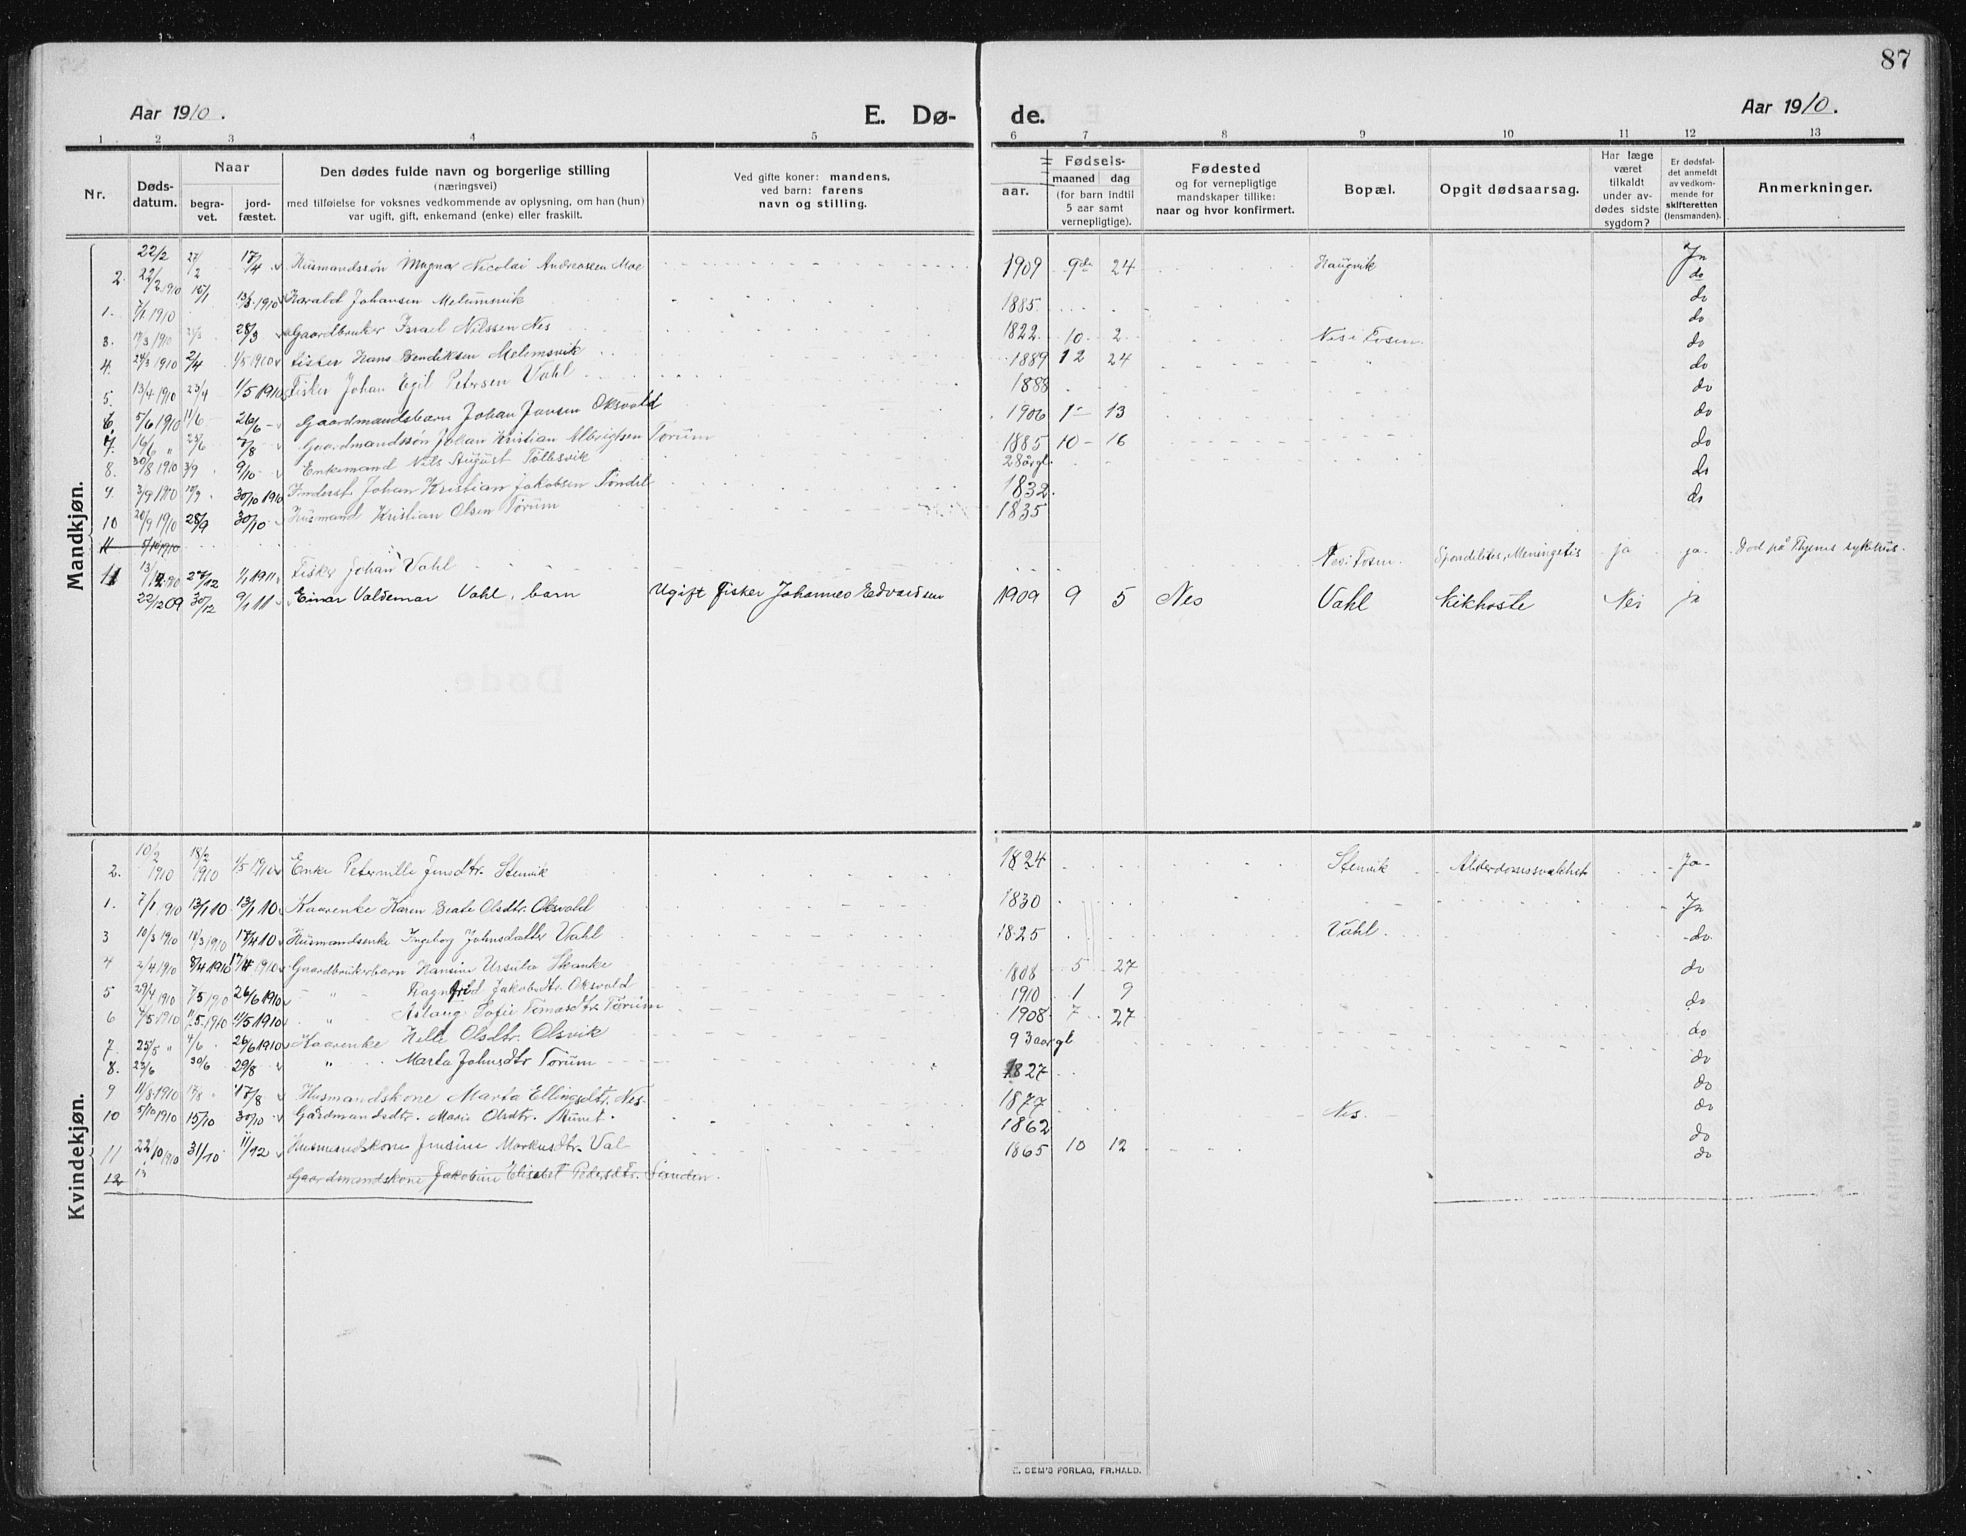 87
Aar 1910. E. Dø- de. Aar 1910.
1 2 3 4 5 6 7 8 9 10 11 12 13
Nr. Døds-datum. Naar begra-vet. jord-fæstet. Den dødes fulde navn og borgerlige stilling (næringsvei) med tilføielse for voksnes vedkommende av oplysning, om han (hun) var ugift, gift, enkemand (enke) eller fraskilt. Ved gifte koner: mandens, ved barn: farens navn og stilling. aar. Fødsels- maaned dag (for barn indtil 5 aar samt vernepligtige). Fødested og for vernepligtige mandskaper tillike: naar og hvor konfirmert. Bopæl. Opgit dødsaarsag. Har læge været tilkaldt under av-dødes sidste sygdom? Er dødsfal-det anmeldt av vedkom-mende for skifteretten (lensmanden). Anmerkninger.
Mandkjøn.
22/2 27/2 17/4 Husmandssøn Magnar Nicolai Andreassen Moe 1909 9de 24 Haugvik Ja
2. 22/2 1910 do
1. 7/1 1910 15/1 13/3 1910 Harald Johansen Melumsvik 1885 do
3. 28/3 Gaardbruker Israel Nilssen Nes 1822 10 2 Nes i Fosen do
4. 24/3 1910 2/4 1/5 1910 Fisker Hans Bendiksen Melumsvik 1889 12 24 " do
5. 13/4 1910 23/4 1/5 1910 Fisker Johan Egil Petersen Vahl 1888 do
6. 5/6 1910 11/6 26/6 Gaardmandsbarn Johan Jensen Oksvold 1906 1 13 do
7. 16/6 " 25/6 7/8 Gaardmandssøn Johan Kristian Albrigtsen Tørum 1885 10 16 do
8. 30/8 1910 3/9 9/10 Enkemand Nils August Tølbsvik 28 år gl. do
9. 3/9 1910 30/10 1910 Johan Kristian Jakobsen Tøndel 1832 do
10 20/9 1910 28/9 30/10 Husmand Kristian Olsen Tørum 1835 do
11 5/10 1910
11 27/12 1/1 1911 Fisker Johan Vahl Nes i Fosen Spondilites, Meningetis ja ja Død på sykehus.
22/12 09 30/12 9/1 11 Einar Valdemar Vahl, barn Ugift fisker Johannes Edvardsen 1909 9 5 Nes Vahl Kikhoste Nei ja
Kvindekjøn.
2. 10/2 1910 18/2 1910 1/5 1910 Enke Peternille Jensdtr. Stenvik 1824 Stenvik Alderdomssvakhet Ja
1. 7/1 1910 13/1 10 13/1 10 Kaarenke Karen Beate Olsdtr. Oksvold 1830 Ja
3 10/3 1910 1910 17/4 10 Husmandsenke Ingeborg Johnsdatter Vahl 1825 Vahl do
4 2/4 1910 8/4 1910 17/4 1910 Gaardbrukerbarn Hansine Ursula Skanke 1808 5 27 do
5 29/4 1910 7/5 190 26/6 1910 " " Ragnfrid Jakobsdtr. Oksvold 1910 1 9 do
6 7/5 1910 1910 1910 " Aslaug Sofie Tomasdtr. Tørum 1908 7 27 do
7. 25/5 " 4/6 26/6 1910 Kaarenke Olsdtr. Olsvik 93 aar gl do
8. 23/6 30/6 29/8 " Marta Johnsdtr Tørum 1827 do
9 11/8 1910 17/8 Husmandskone Marta Ellingsdtr. Nes 1877 do
10 5/10 1910 15/10 30/10 Gårdmandsdtr. Marie Olsdtr. Munet 1862 Nes do
11 22/10 1910 31/10 11/12 Husmandskone Jensine Markusdtr. Val 1865 10 12 do
12 Gaardmandskone Jakobine Elisabet Pedersdtr. Sanden. do
E. SEM'S FORLAG, FR.HALD.